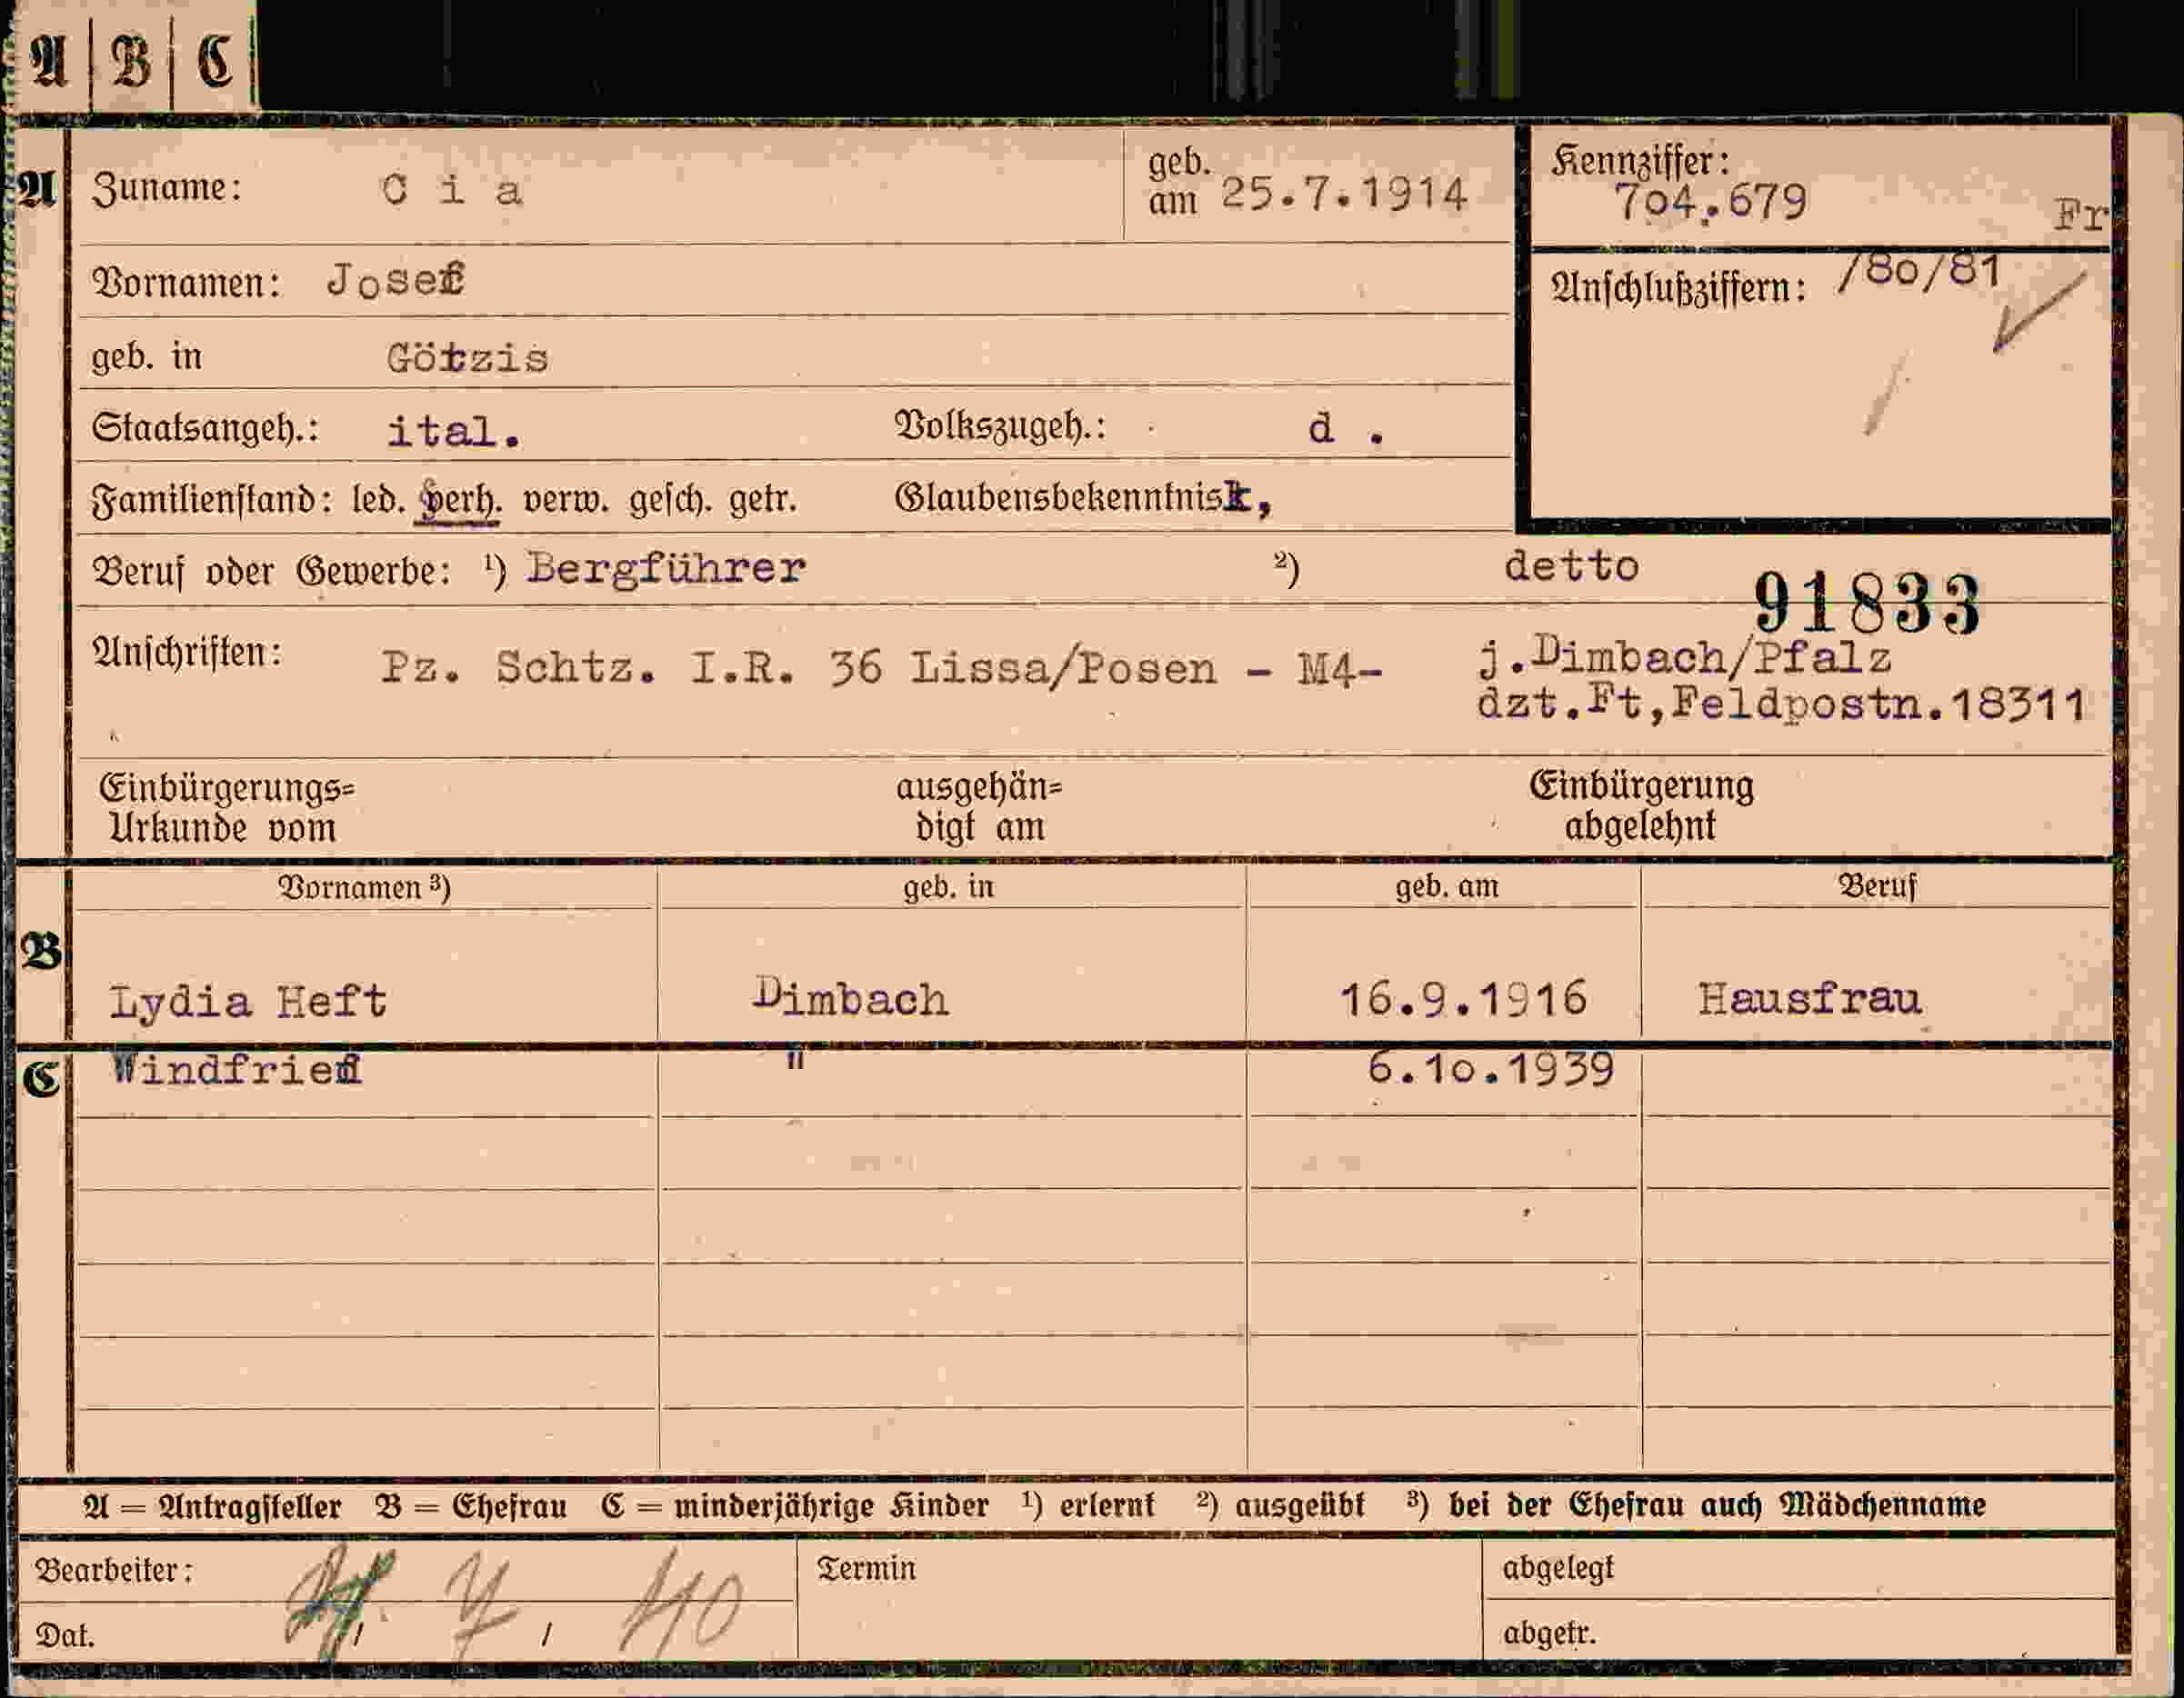 A B C
A Zuname: C i a geb. am 25.7.1914 Kennziffer: 704.679 Fr
Vornamen: Josef Anschlußziffern: /80/81
geb. in Götzis
Staatsangeh.: ital. Volkszugeh.: d .
Familienstand: led. verh. verw. gesch. getr. Glaubensbekenntnis k,
Beruf oder Gewerbe: ¹) Bergführer ²) detto
91833
Anschriften: Pz. Schtz. I.R. 36 Lissa/Posen - M4- j.Dimbach/Pfalz
dzt.Ft,Feldpostn.18311
Einbürgerungs= ausgehän= Einbürgerung
Urkunde vom digt am abgelehnt
Vornamen ³) geb. in geb. am Beruf
B
Lydia Heft Dimbach 16.9.1916 Hausfrau
C Windfried " 6.10.1939
A = Antragsteller B = Ehefrau C = minderjährige Kinder ¹) erlernt ²) ausgeübt ³) bei der Ehefrau auch Mädchenname
Bearbeiter: Termin abgelegt
Dat. / 7 / 40 abgetr.